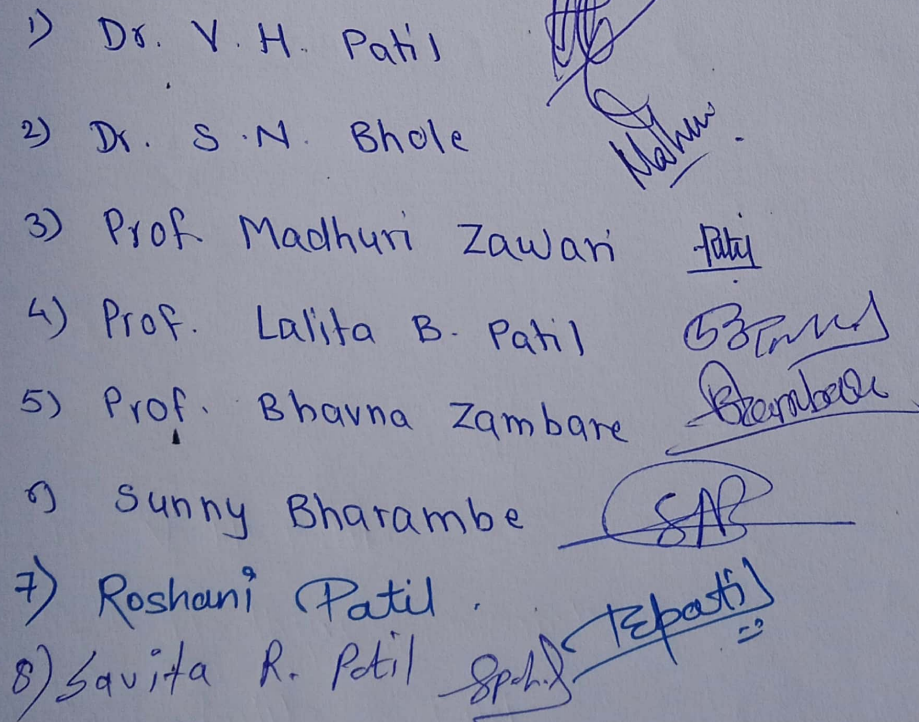 1) Dr. V. H. Patil
2) Dr. S. N. Bhole Mahw.
3) Prof. Madhuri Zawari
4) Prof. Lalita B. Patil
5) Prof. Bhavna Zambare Bzambare
6) Sunny Bharambe SAB
7) Roshani Patil.
8) Savita R. Patil